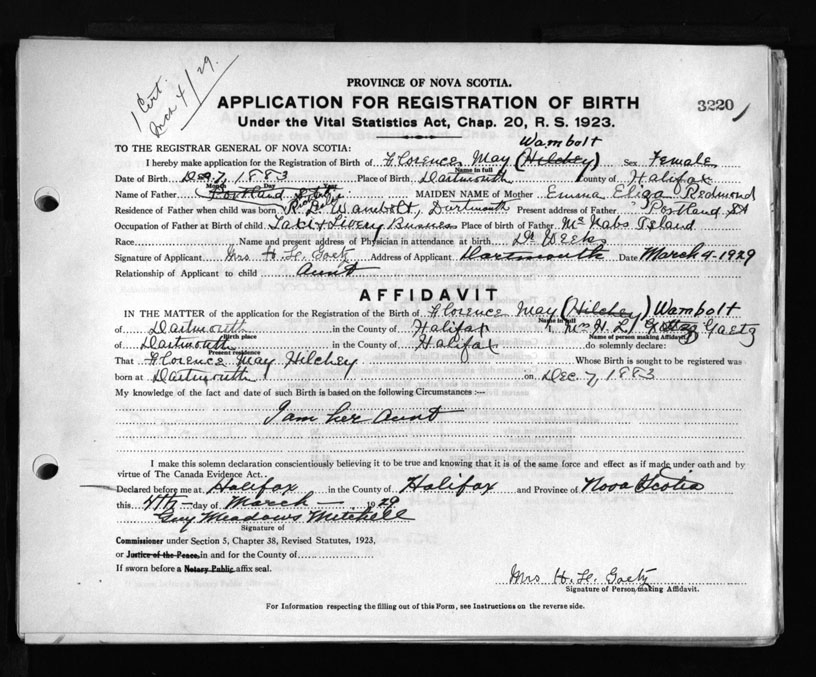 1 Cert.
Mch 4/29.
PROVINCE OF NOVA SCOTIA.
APPLICATION FOR REGISTRATION OF BIRTH
3220
Under the Vital Statistics Act, Chap. 20, R. S. 1923.
Wambolt
TO THE REGISTRAR GENERAL OF NOVA SCOTIA:
I hereby make application for the Registration of Birth of Florence May (Hilchey) Sex Female
Name in full
Date of Birth Dec 7, 1883 Place of Birth Dartmouth County of Halifax
Month Day Year
Name of Father Portland MAIDEN NAME of Mother Emma Eliza Redmond
Residence of Father when child was born Wambolt, Dartmouth Present address of Father Portland St
Occupation of Father at Birth of child Livery Business Place of birth of Father McNabs Island
Race Name and present address of Physician in attendance at birth Dr Weeks
Signature of Applicant Mrs H. L. Gaetz Address of Applicant Dartmouth Date March 4-1929
Relationship of Applicant to child Aunt
AFFIDAVIT
IN THE MATTER of the application for the Registration of the Birth of Florence May (Hilchey) Wambolt
Name in full
of Dartmouth in the County of Halifax I, Mrs H. L. Gaetz
Birth place Name of person making Affidavit
of Dartmouth in the County of Halifax do solemnly declare:
Present residence
That Florence May Hilchey Whose Birth is sought to be registered was
born at Dartmouth on Dec 7, 1883
My knowledge of the fact and date of such Birth is based on the following Circumstances :—
I am her Aunt
I make this solemn declaration conscientiously believing it to be true and knowing that it is of the same force and effect as if made under oath and by
virtue of The Canada Evidence Act.
Declared before me at Halifax in the County of Halifax and Province of Nova Scotia
this 4th day of March 1929
Guy Meadows Mitchell
Signature of
Commissioner under Section 5, Chapter 38, Revised Statutes, 1923,
or Justice of the Peace, in and for the County of
If sworn before a Notary Public, affix seal.
Mrs H. L. Gaetz
Signature of Person making Affidavit.
For Information respecting the filling out of this Form, see Instructions on the reverse side.